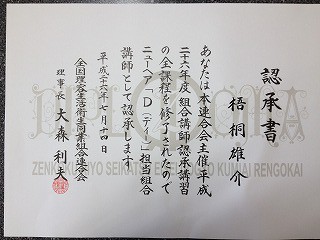 認承書
梧桐雄介
あなたは本連合会主催平成
二十六年度組合講師認承講習
の全課程を修了されたので
ニューヘア「D(ディー)」担当組合
講師として認承します
平成二十六年七月十四日
全国理容生活衛生同業組合連合会
理事長 大森利夫